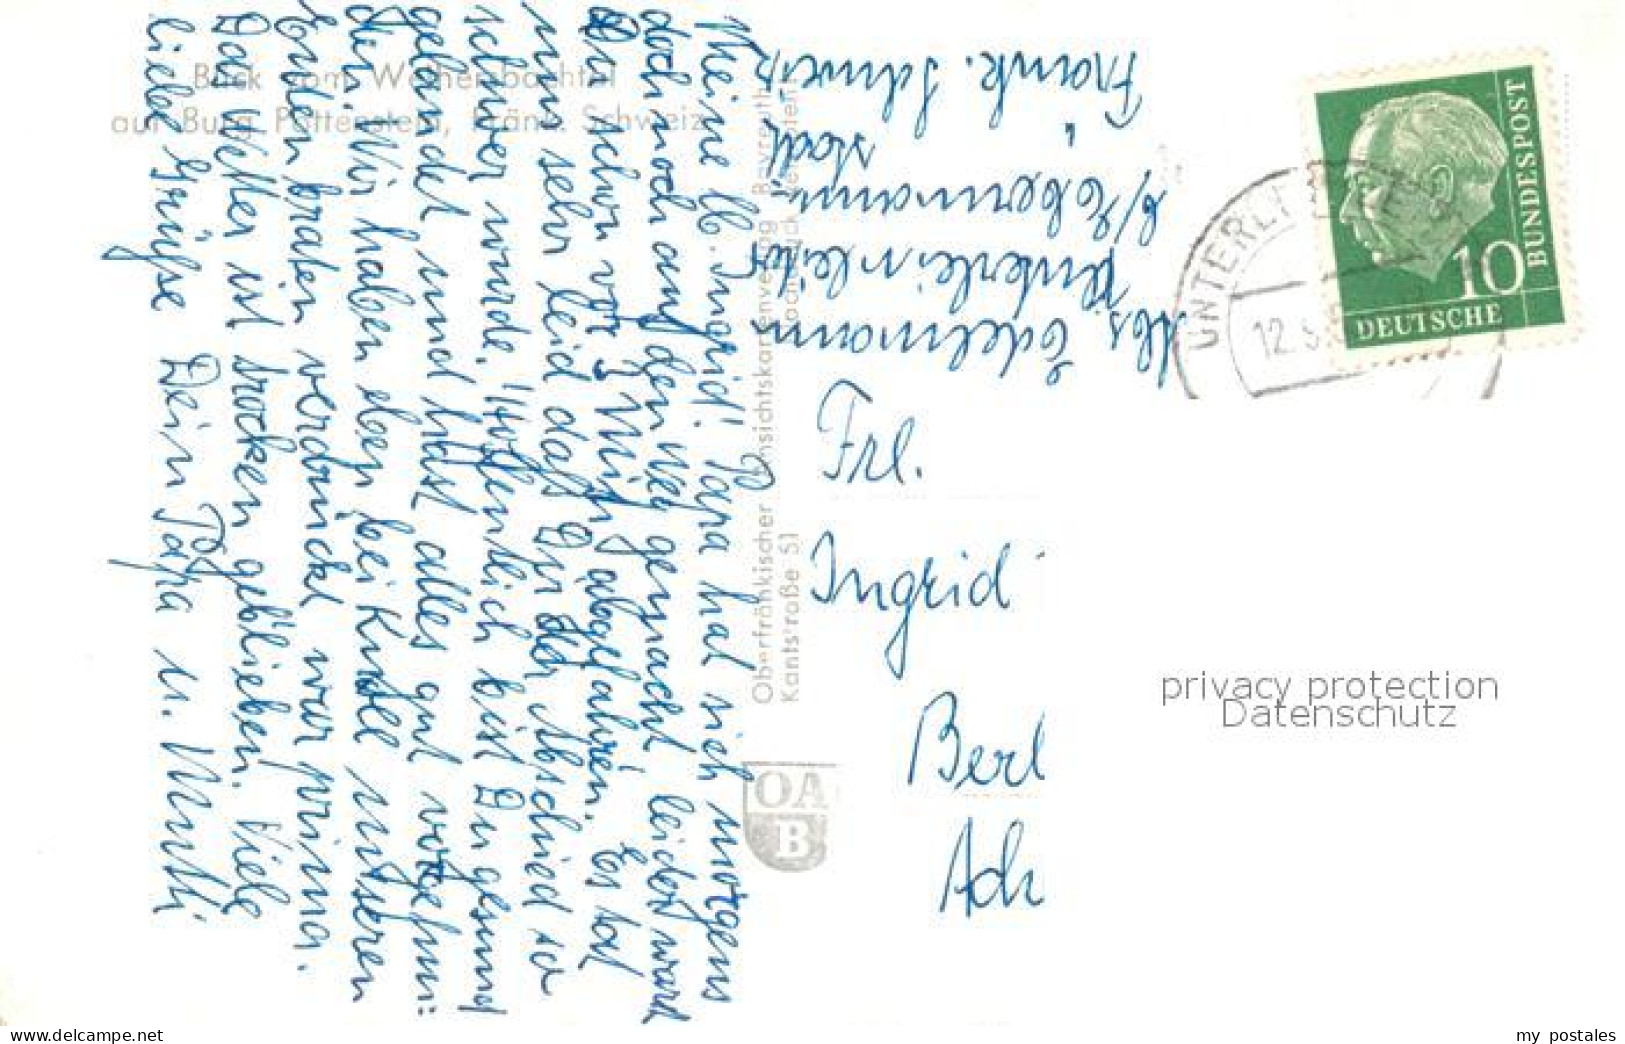 Blick vom Weihersbachtal
auf Burg Pottenstein, Fränk. Schweiz
Meine lb. Ingrid! Papa hat sich morgens
doch noch auf den Weg gemacht leider warst
Du schon vor 9 Uhr abgefahren. Es tat
uns sehr leid daß Dir der Abschied so
schwer wurde. Hoffentlich bist Du gesund
gelandet und hast alles gut vorgefun=
den. Wir haben eben bei Knoll unseren
Entenbraten verdrückt war prima.
Das Wetter ist trocken geblieben. Viele
liebe Grüße Dein Papa u. Mutti
Abs. Edelmann
Unterleinleiter
b/Ebermann=
stadt
Fränk. Schweiz
Oberfränkischer Ansichtskartenverlag Bayreuth
Kantstraße 51
OA
B
Frl.
Ingrid
Berl
Ach
UNTERLEI
12.
10
DEUTSCHE
BUNDESPOST
privacy protection
Datenschutz
www.delcampe.net
my_postales